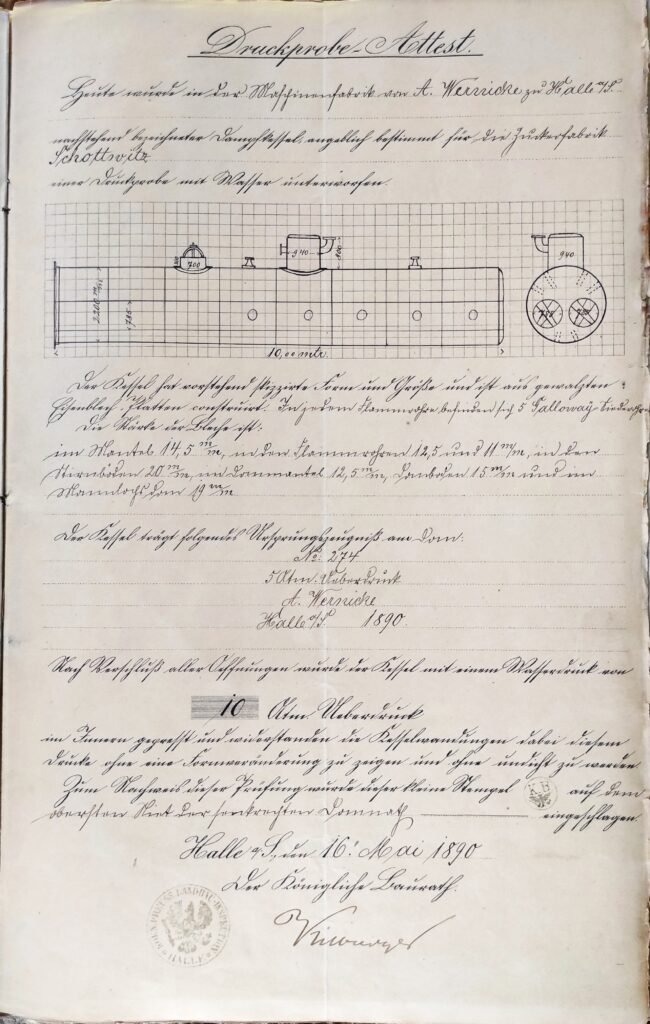 Druckprobe-Attest.
Heute wurde in der Maschinenfabrik von A. Wernicke zu Halle a/S.
nachstehend bezeichneter Dampfkessel, angeblich bestimmt für die Zuckerfabrik
Schottwitz
einer Druckprobe mit Wasser unterworfen.
700
940
400
940
2200 m/m
785
10,00 mtr.
Der Kessel hat vorstehend skizzirte Form und Größe und ist aus gewalzten
Eisenblech-Platten construirt. In jedem Flammrohre befinden sich 5 Galloway-Siederohre
Die Stärke der Bleche ist:
im Mantel 14,5 m/m, in den Flammrohren 12,5 und 11 m/m, in den
Stirnböden 20 m/m, im Dommantel 12,5 m/m, Domboden 15 m/m und im
Mannlochsdom 19 m/m
Der Kessel trägt folgendes Ursprungszeugniß am Dom:
No: 274
5 Atm. Ueberdruck
A. Wernicke
Halle a/S 1890.
Nach Verschluß aller Oeffnungen wurde der Kessel mit einem Wasserdruck von
10 Atm. Ueberdruck
im Innern gepresst und widerstanden die Kesselwandungen dabei diesem
Drucke ohne eine Formveränderung zu zeigen und ohne undicht zu werden.
Zum Nachweis dieser Prüfung wurde dieser kleine Stempel K B auf dem
obersten Niet der senkrechten Domnath eingeschlagen.
Halle a. S., den 16t. Mai 1890
Der Königliche Baurath.
HALLE